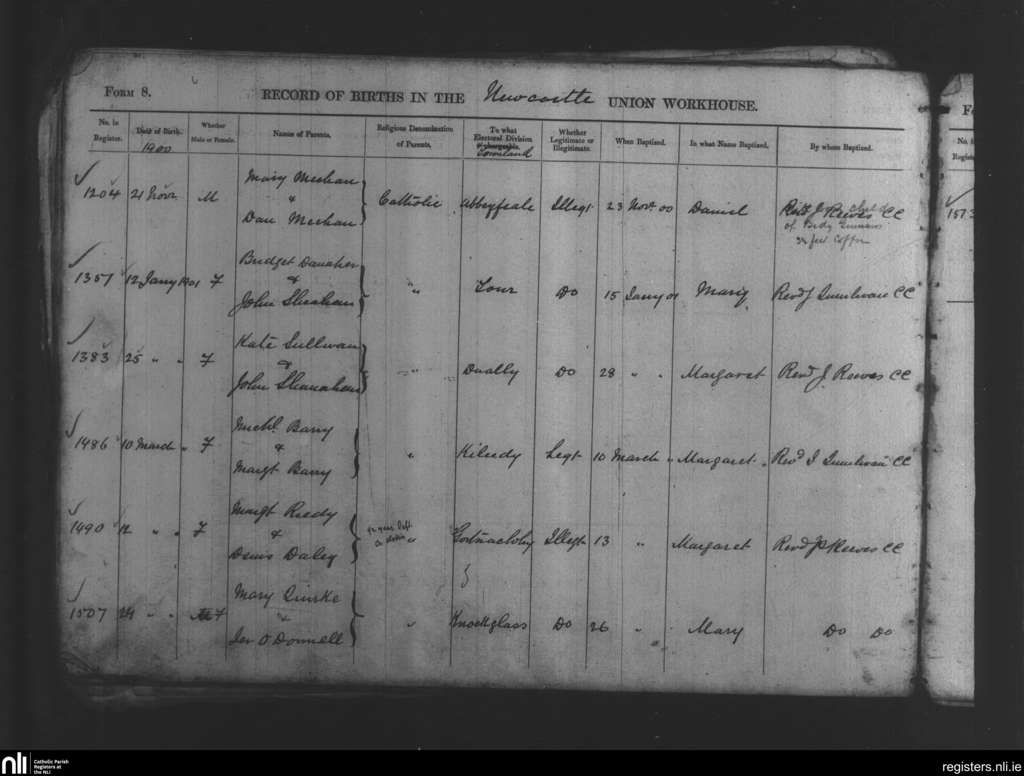 FORM 8.
RECORD OF BIRTHS IN THE Newcastle UNION WORKHOUSE.
No. in Register. Date of Birth. Whether Male or Female. Names of Parents. Religious Denomination of Parents. To what Electoral Division chargeable. Townland Whether Legitimate or Illegitimate. When Baptized. In what Name Baptized. By whom Baptized.
1900
Mary Meehan
1204 21 Novr M & Catholic Abbeyfeale Illegt 23 Novr 00 Daniel Revd J Reeves CC
Dan Meehan
of Bedy
Bridget Danaher
1357 12 Janry 1901 F & " Do 15 Janry 01 Mary Revd J CC
John Sheehan
Kate Sullivan
1383 25 " " F & " Dually Do 28 " " Margaret Revd J. Reeves CC
John Shanahan
Michl. Barry
1486 10 March " F & " Kileedy Legt 10 March " Margaret " Revd J CC
Margt Barry
Margt Reedy
1490 12 " " F & " Illegt 13 " Margaret Revd JP Reeves CC
Denis Daley
Mary Quirke
1507 24 " " F & " Knockglass Do 26 " " Mary Do Do
Jer O Donnell
1573
nli Catholic Parish Registers at the NLI
registers.nli.ie